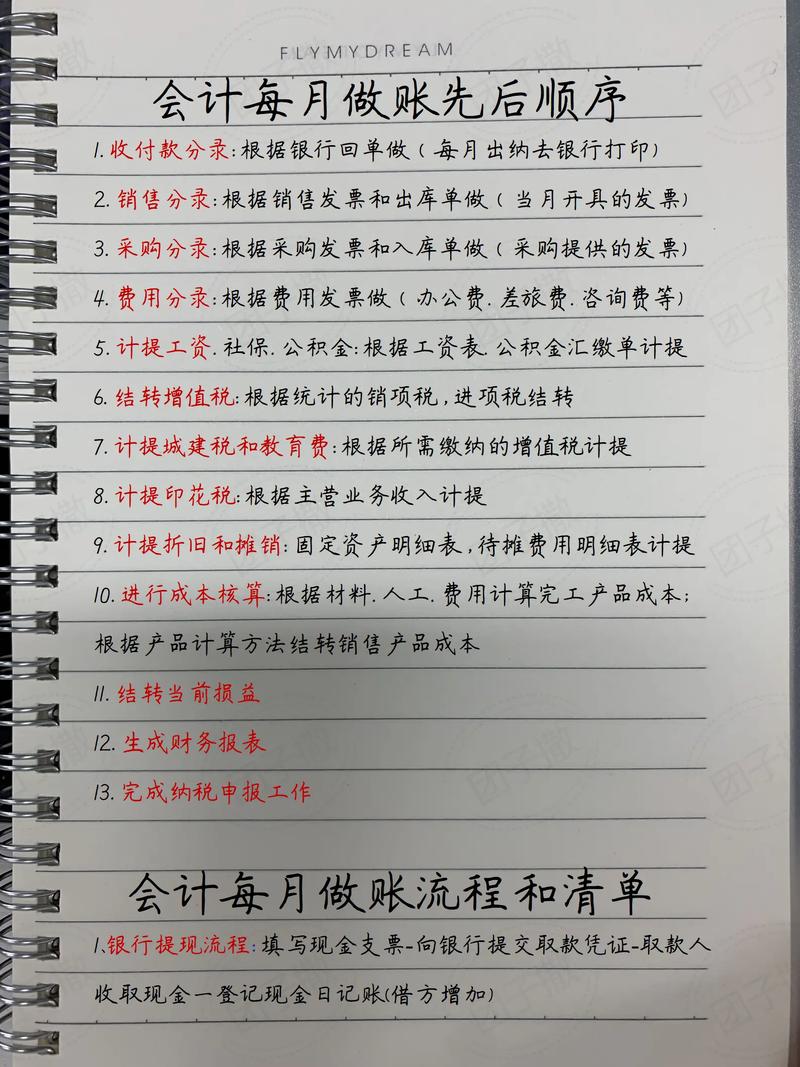 FLYMYDREAM
会计每月做账先后顺序
1. 收付款分录:根据银行回单做(每月出纳去银行打印)
2. 销售分录:根据销售发票和出库单做(当月开具的发票)
3. 采购分录:根据采购发票和入库单做(采购提供的发票)
4. 费用分录:根据费用发票做(办公费.差旅费.咨询费等)
5. 计提工资.社保.公积金:根据工资表.公积金汇缴单计提
6. 结转增值税:根据统计的销项税,进项税结转
7. 计提城建税和教育费:根据所需缴纳的增值税计提
8. 计提印花税:根据主营业务收入计提
9. 计提折旧和摊销:固定资产明细表,待摊费用明细表计提
10. 进行成本核算:根据材料.人工.费用计算完工产品成本;
根据产品计算方法结转销售产品成本
11. 结转当前损益
12. 生成财务报表
13. 完成纳税申报工作
会计每月做账流程和清单
1、银行提现流程:填写现金支票-向银行提交取款凭证-取款人
收取现金一登记现金日记账(借方增加)